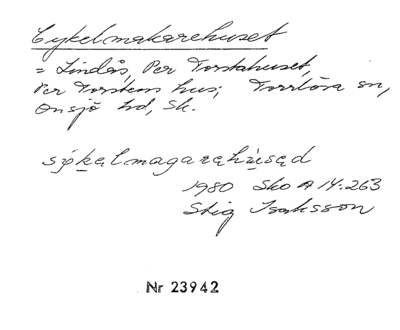 Cykelmakarehuset
= Lindås, Per Torstahuset,
Per Torstens hus; Torrlösa sn,
Onsjö hd, Sk.
sýkalmagarahùsad
1980 Sko A 14:263
Stig Isaksson
Nr 23942